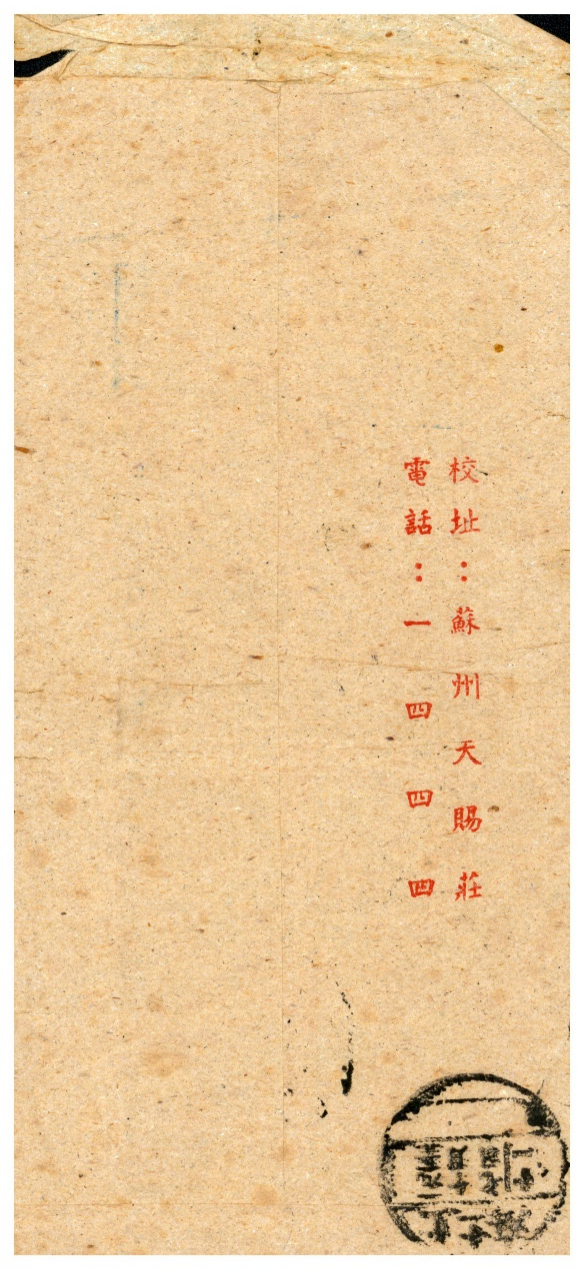 校址：蘇州天賜莊
電話：一四四四